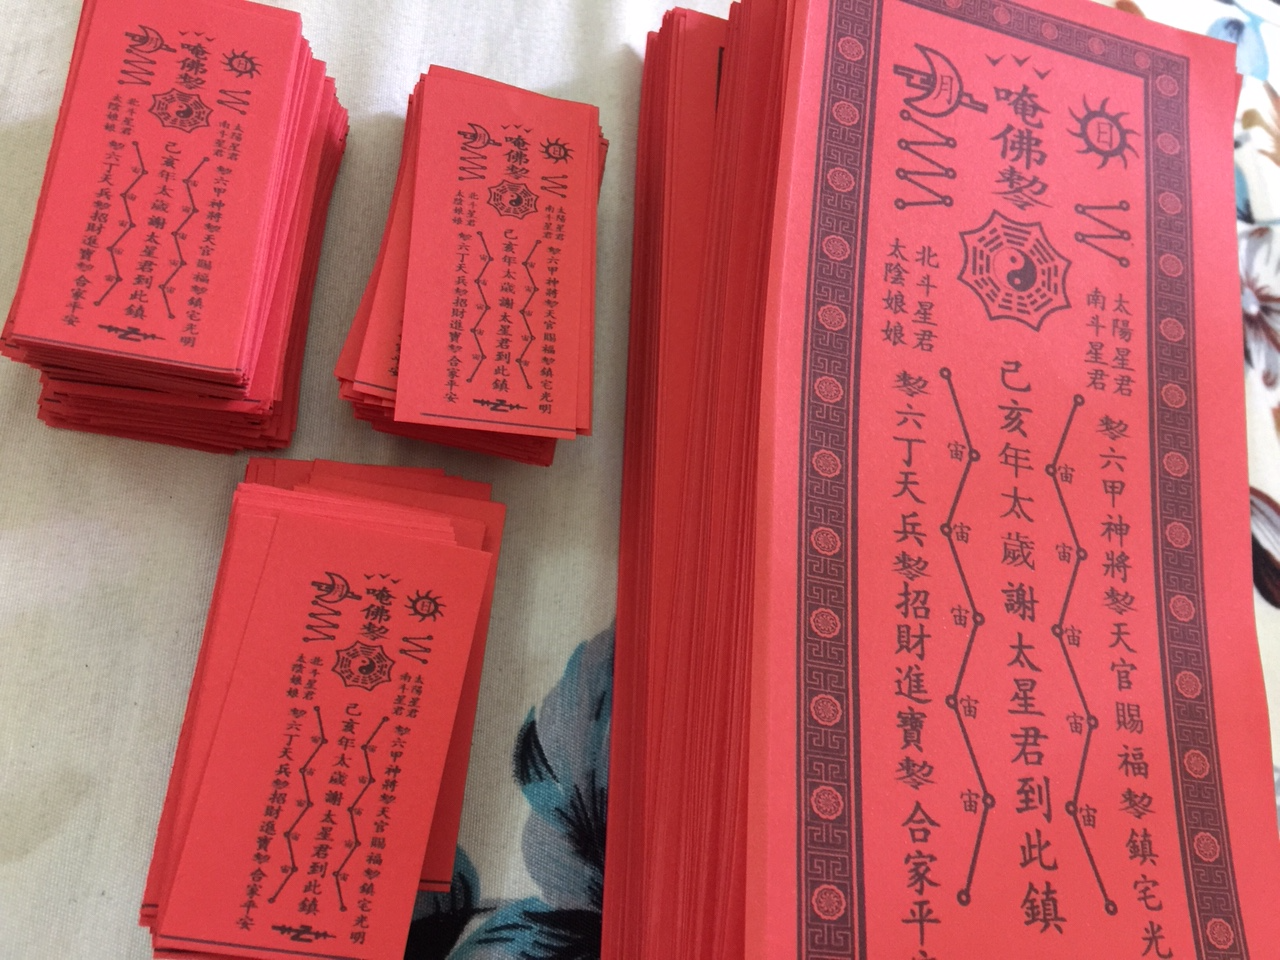 日
唵佛
月
太陽星君
南斗星君
北斗星君
太陰娘娘
六甲神將 天官賜福 鎮宅光明
己亥年太歲謝太星君到此鎮
六丁天兵 招財進寶 合家平安
日
唵佛
月
太陽星君
南斗星君
北斗星君
太陰娘娘
六甲神將 天官賜福 鎮宅光明
己亥年太歲謝太星君到此鎮
六丁天兵 招財進寶 合家平安
日
唵佛
月
太陽星君
南斗星君
北斗星君
太陰娘娘
六甲神將 天官賜福 鎮宅光明
己亥年太歲謝太星君到此鎮
六丁天兵 招財進寶 合家平安
日
唵佛
月
太陽星君
南斗星君
北斗星君
太陰娘娘
六甲神將 天官賜福 鎮宅光
宙宙宙宙宙
己亥年太歲謝太星君到此鎮
宙宙宙宙宙
六丁天兵 招財進寶 合家平